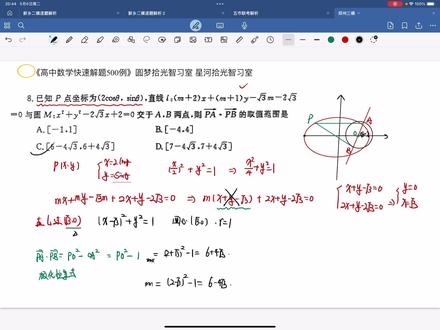 20:44 5月6日周二
新乡二模速览解析
新乡二模速览解析 2
五市联考解析
郑州三模
《高中数学快速解题500例》圆梦拾光智习室 星河拾光智习室
8. 已知 P 点坐标为(2cosθ, sinθ),直线 l:(m+2)x+(m+1)y-√3m-2√3
=0 与圆 M:x²+y²-2√3x+2=0 交于 A、B 两点,则 PA·PB 的取值范围是
A. [-1,1] B. [-4,4]
C. [6-4√3,6+4√3] D. [7-4√3,7+4√3]
P(x,y) { x=2cosθ (x/2)²+y²=1 x²/4+y²=1
y=sinθ
mx+my-√3m+2x+y-2√3=0 ⇒ m(x+y-√3)+2x+y-2√3=0
(x-√3)²+y²=1 圆心(√3,0) r=1
{ x+y-√3=0
2x+y-2√3=0 ⇒ { y=0
x=√3
PA·PB=PO²-OA²=PO²-1
极化恒等式
(2+√3)²-1=6+4√3
m=(2-√3)²-1=6-4√3
P
A
B